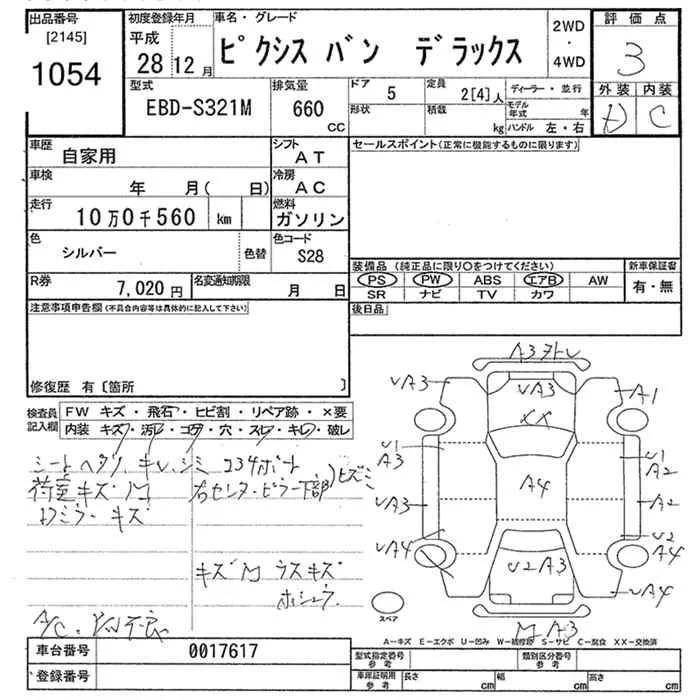 出品番号
[2145]
1054
初度登録年月
平成
28 12 月
車名・グレード
ピクシス バン デラックス
2WD
・
4WD
評価点
3
外装 内装
D C
型式
EBD-S321M
排気量
660
CC
ドア
5
定員
2[4]人
形状
積載
kg
ディーラー・並行
モデル年式 年
ハンドル 左・右
車歴
自家用
シフト
AT
車検
年 月( 日)
冷房
AC
走行
10万0千560 km
燃料
ガソリン
色
シルバー
色替
色コード
S28
R券
7,020 円
名変通知期限
月 日
セールスポイント(正常に機能するものに限ります)
装備品(純正品に限り○をつけてください)
PS PW ABS エアB AW
SR ナビ TV カワ
新車保証書
有・無
後日品
注意事項申告欄(不具合内容等は具体的に記入して下さい)
修復歴 有〔箇所 〕
検査員記入欄
FW キズ・飛石・ヒビ割・リペア跡・×要
内装 キズ・汚レ・コゲ・穴・スレ・キレ・破レ
シートヘタリ、キレ、シミ
荷室キズM
キズ
右センターピラー下部
ヒズミ
キズM ウスキズ
A/C
A3
UA3
UA3
A1
XX
U1
A3
U1
A2
A4
UA3
A2
UA4
U2
A4
U2A3
UA4
M A3
スペア
A-キズ E-エクボ U-凹み W-補修跡 S-サビ C-腐食 XX-交換済
車台番号 0017617
登録番号
型式指定番号
参考
類別区分番号
参考
車庫証明用
参考
長さ cm 幅 cm 高さ cm